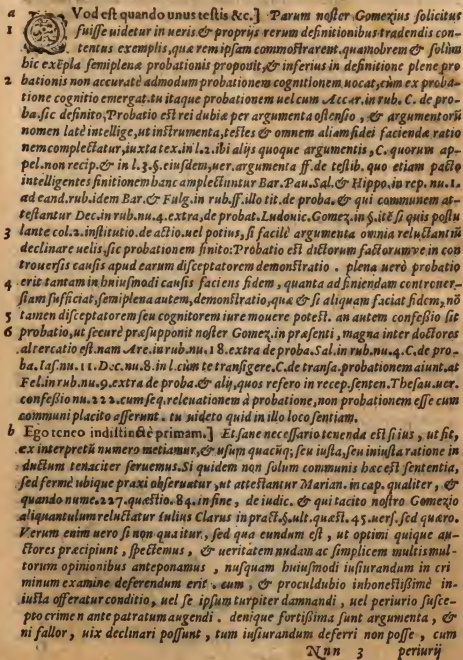 a Vod est quando unus testis &c.] Parum noster Gomezius solicitus
1 fuisse uidetur in ueris & proprijs rerum definitionibus tradendis con-
tentus exemplis, quæ rem ipsam commostrarent. quamobrem & solùm
hic exẽpla semiplenæ probationis proponit, & inferius in definitione plene pro
2 bationis non accuratè admodum probationem cognitionem uocat, cùm ex proba-
tione cognitio emergat. tu itaque probationem uel cum Accur. in rub. C. de pro-
ba. sic definito, Probatio est rei dubiæ per argumenta ostensio, & argumentorũ
nomen latè intellige, ut instrumenta, testes & omnem aliam fidei faciendæ ratio
nem complectatur, iuxta tex. in l. 2. ibi alijs quoque argumentis, C. quorum ap-
pel. non recip. & in l. 3. §. eiusdem, uer. argumenta ff. de testib. quo etiam pacto
intelligentes finitionem hanc amplectuntur Bar. Pau. Sal. & Hippo. in rep. nu. 1.
ad eand. rub. idem Bar. & Fulg. in rub. ff. illo tit. de proba. & qui communem at-
testantur Dec. in rub. nu. 4. extra, de probat. Ludouic. Gomez. in §. itẽ si quis postu
3 lante col. 2. institutio. de actio. uel potius, si facilè argumenta omnia reluctantiũ
declinare uelis, sic probationem finito: Probatio est dictorum factorumve in con
trouersis causis apud earum disceptatorem demonstratio. plena uerò probatio
4 erit tantam in huiusmodi causis faciens fidem, quanta ad finiendam controuer-
siam sufficiat, semiplena autem, demonstratio, quæ & si aliquam faciat fidem, nõ
5 tamen disceptatorem seu cognitorem iure mouere potest. an autem confessio sit
6 probatio, ut securè præsupponit noster Gomez. in præsenti, magna inter doctores
altercatio est. nam Are. in rub. nu. 18. extra de proba. Sal. in rub. nu. 4. C. de pro-
ba. Ias. nu. 11. Dec. nu. 8. in l. cùm te transigere. C. de transa. probationem aiunt. at
Fel. in rub. nu. 9. extra de proba. & alij, quos refero in recep. senten. Thesau. uer.
confessio nu. 222. cum seq. releuationem à probatione, non probationem esse cum
communi placito asserunt. tu uideto quid in illo loco sentiam.
b Ego teneo indistinctè primam.] Et sane necessario tenenda est si ius, ut fit,
ex interpretũ numero metiamur, & usum quacũq; seu iusta, seu iniusta ratione in
ductum tenaciter seruemus. Si quidem non solum communis hæc est sententia,
sed fermè ubique praxi obseruatur, ut attestantur Marian. in cap. qualiter, &
quando nume. 227. quæstio. 84. in fine, de iudic. & qui tacito nostro Gomezio
aliquantulum reluctatur Iulius Clarus in pract. §. ult. quæst. 45. uers. sed quæro.
Verum enim uero si non qua itur, sed qua eundum est, ut optimi quique au-
ctores præcipiunt, spectemus, & ueritatem nudam ac simplicem multis mul-
torum opinionibus anteponamus, nusquam huiusmodi iusiurandum in cri
minum examine deferendum erit. cum, & proculdubio inhonestissimè in-
iusta offeratur conditio, uel se ipsum turpiter damnandi, uel periurio susce-
pto crimen ante patratum augendi. denique fortissima sunt argumenta, &
ni fallor, uix declinari possunt, tum iusiurandum deferri non posse, cum
Nnn 3 periurij